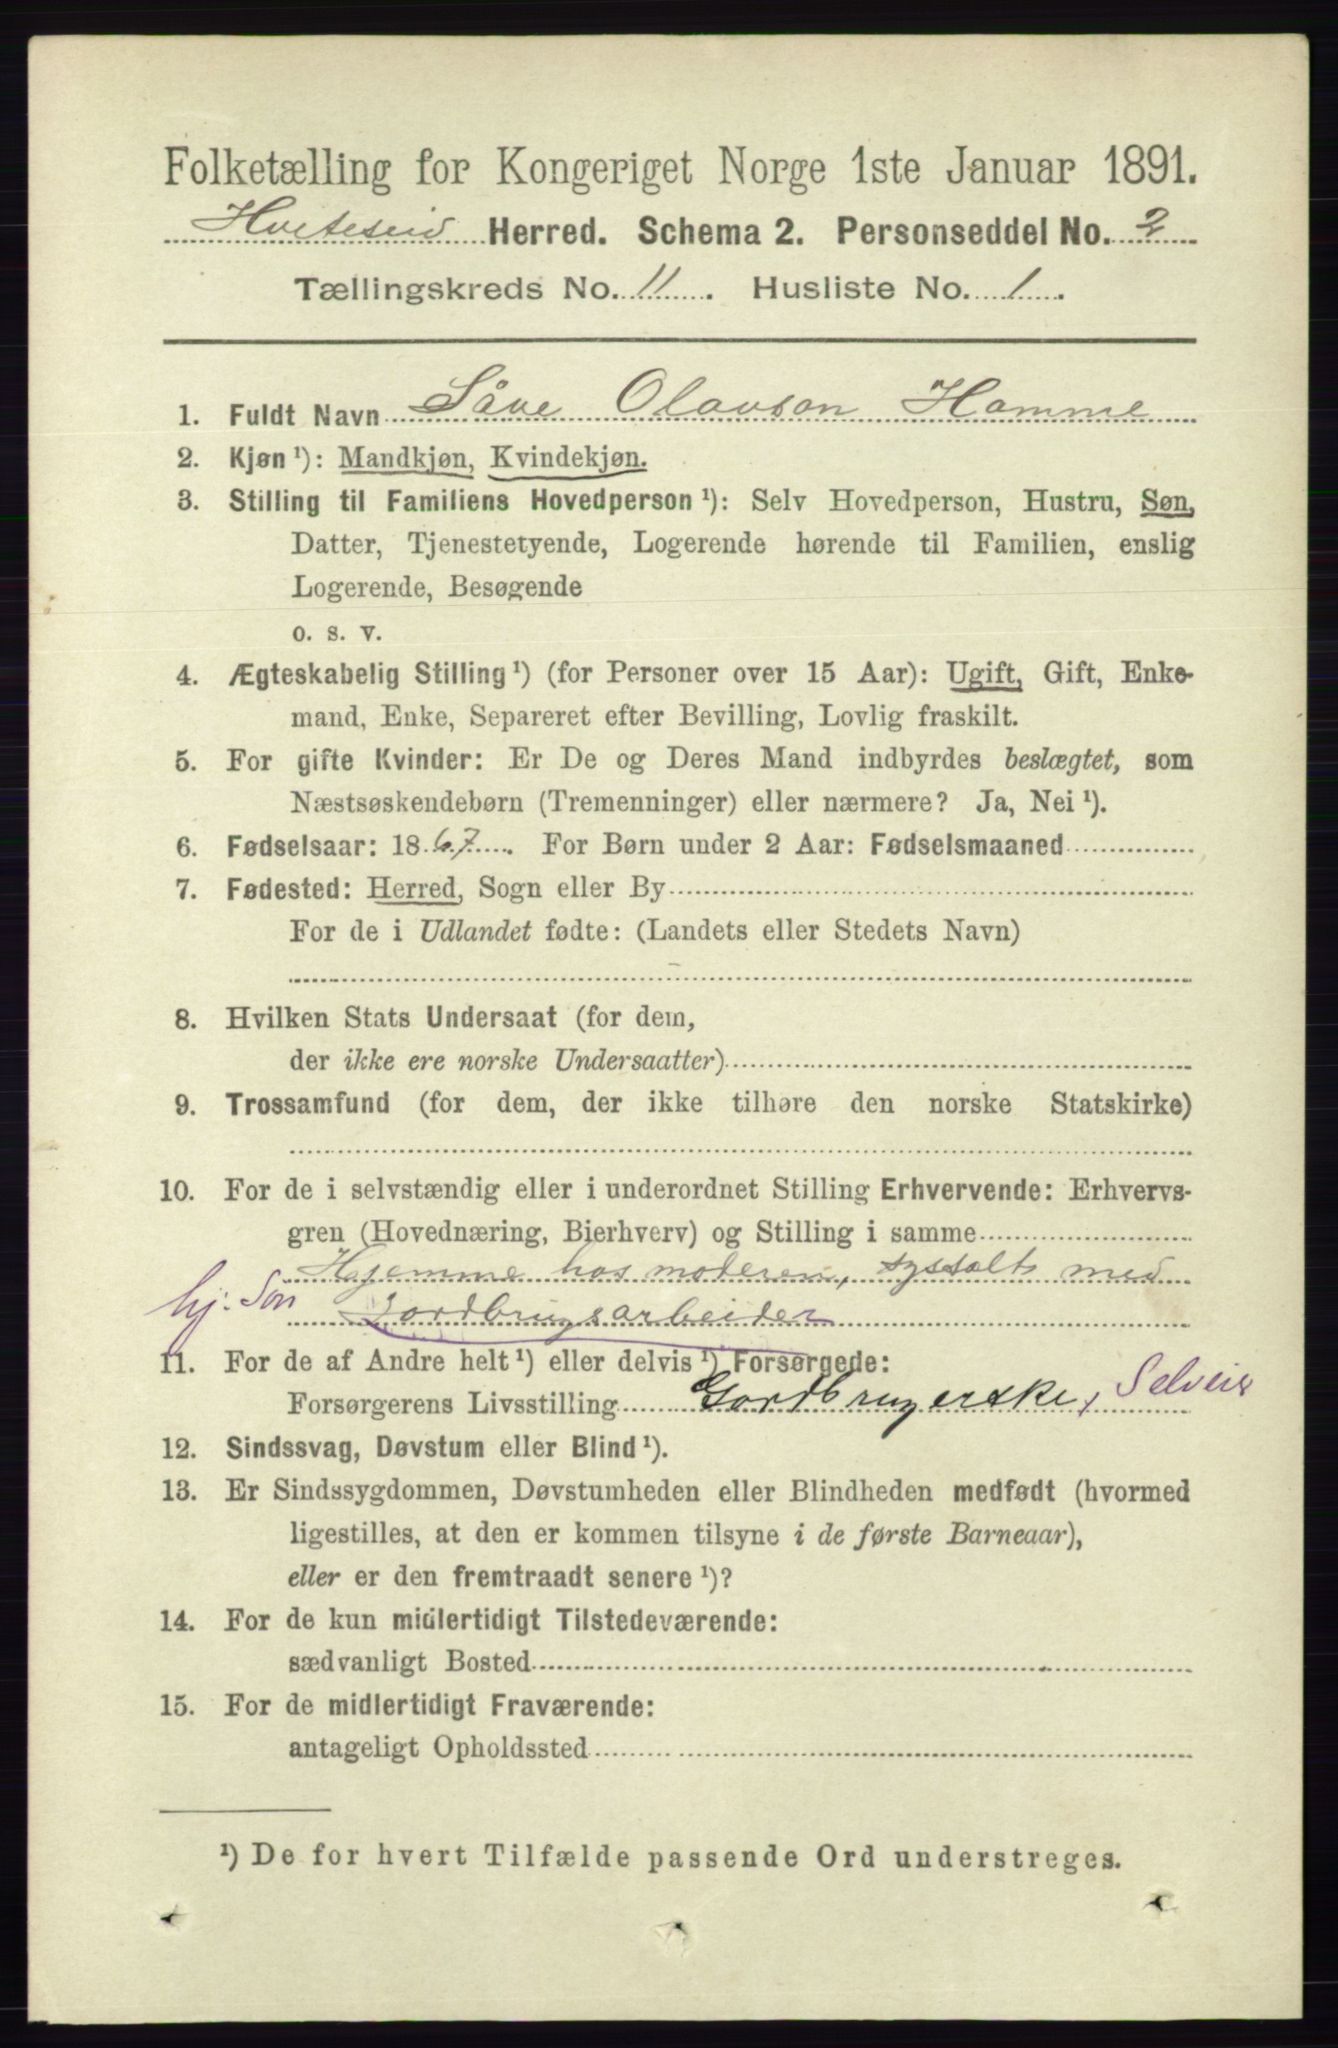 Folketælling for Kongeriget Norge 1ste Januar 1891.
Hviteseid Herred. Schema 2. Personseddel No. 2
Tællingskreds No. 11. Husliste No. 1.
1. Fuldt Navn Såve Olavson Homme
2. Kjøn ¹): Mandkjøn, Kvindekjøn.
3. Stilling til Familiens Hovedperson ¹): Selv Hovedperson, Hustru, Søn,
Datter, Tjenestetyende, Logerende hørende til Familien, enslig
Logerende, Besøgende
o. s. v.
4. Ægteskabelig Stilling ¹) (for Personer over 15 Aar): Ugift, Gift, Enke-
mand, Enke, Separeret efter Bevilling, Lovlig fraskilt.
5. For gifte Kvinder: Er De og Deres Mand indbyrdes beslægtet, som
Næstsøskendebørn (Tremenninger) eller nærmere? Ja, Nei ¹).
6. Fødselsaar: 1867. For Børn under 2 Aar: Fødselsmaaned
7. Fødested: Herred, Sogn eller By
For de i Udlandet fødte: (Landets eller Stedets Navn)
8. Hvilken Stats Undersaat (for dem,
der ikke ere norske Undersaatter)
9. Trossamfund (for dem, der ikke tilhøre den norske Statskirke)
10. For de i selvstændig eller i underordnet Stilling Erhvervende: Erhvervs-
gren (Hovednæring, Bierhverv) og Stilling i samme
Hjemme hos moderen, syssalt med
hj. Søn Jordbrugsarbeider
11. For de af Andre helt ¹) eller delvis ¹) Forsørgede:
Forsørgerens Livsstilling Gordbrugerske, Selveier
12. Sindssvag, Døvstum eller Blind ¹).
13. Er Sindssygdommen, Døvstumheden eller Blindheden medfødt (hvormed
ligestilles, at den er kommen tilsyne i de første Barneaar),
eller er den fremtraadt senere ¹)?
14. For de kun midlertidigt Tilstedeværende:
sædvanligt Bosted
15. For de midlertidigt Fraværende:
antageligt Opholdssted
¹) De for hvert Tilfælde passende Ord understreges.